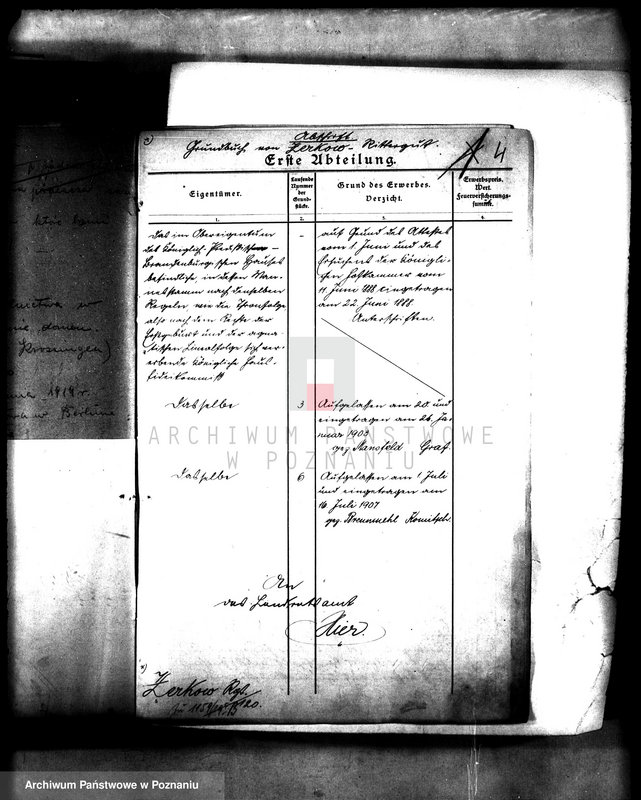 Abschrift
Grundbuch von Zerkow - Rittergut.
4
Erste Abteilung.
Eigentümer.
Laufende
Nummer
der
Grund-
stücke.
Grund des Erwerbes.
Verzicht.
Erwerbspreis.
Wert.
Feuerversicherungs-
summe.
1. 2. 3. 4.
Das im Obereigentum
des königlich Preußisch-
Brandenburgischen Hauses
befindliche, in dessen Man-
nesstamm nach denselben
Regeln wie die Thronfolge
also nach dem Rechte der
Erstgeburt und der agna-
tischen Linealfolge sich ver-
erbende königliche Haus-
fideikommiß
-
auf Grund des Attestes
vom 1. Juni und des
Ersuchens der königli-
chen Hofkammer vom
11. Juni 1888 eingetragen
am 22. Juni 1888.
Unterschriften.
Dasselbe
3
Aufgelassen am 20. und
eingetragen am 26. Ja-
nuar 1903
gez. Mansfeld Graf.
Dasselbe
6
Aufgelassen am 1. Juli
und eingetragen am
16. Juli 1907
gez. Brennmehl Komitsch.
An
das Landratsamt
Hier.
Zerkow Rgt.
ARCHIWUM PAŃSTWOWE
W POZNANIU
1919 r.
w Berlinie
Archiwum Państwowe w Poznaniu